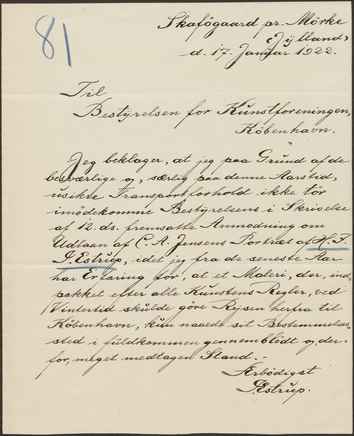 81
Skaføgaard pr. Mörke
Jylland,
d. 17. Januar 1922.
Til
Bestyrelsen for Kunstforeningen,
København.
Jeg beklager, at jeg paa Grund af de
besværlige og, særlig paa denne Aarstid,
usikre Transportforhold ikke tör
imödekomme Bestyrelsens i Skrivelse
af 12. ds. fremsatte Anmodning om
Udlaan af C. A. Jensens Portræt af H. F.
J. Estrup, idet jeg fra de seneste Aar
har Erfaring for, at et Maleri, der, ind-
pakket efter alle Kunstens Regler, ved
Vintertid skulde göre Rejsen herfra til
København, kun naaede sit Bestemmelses-
sted i fuldkommen gennemblödt og, der-
for, meget medtagen Stand.-
Ærbödigst
Estrup.